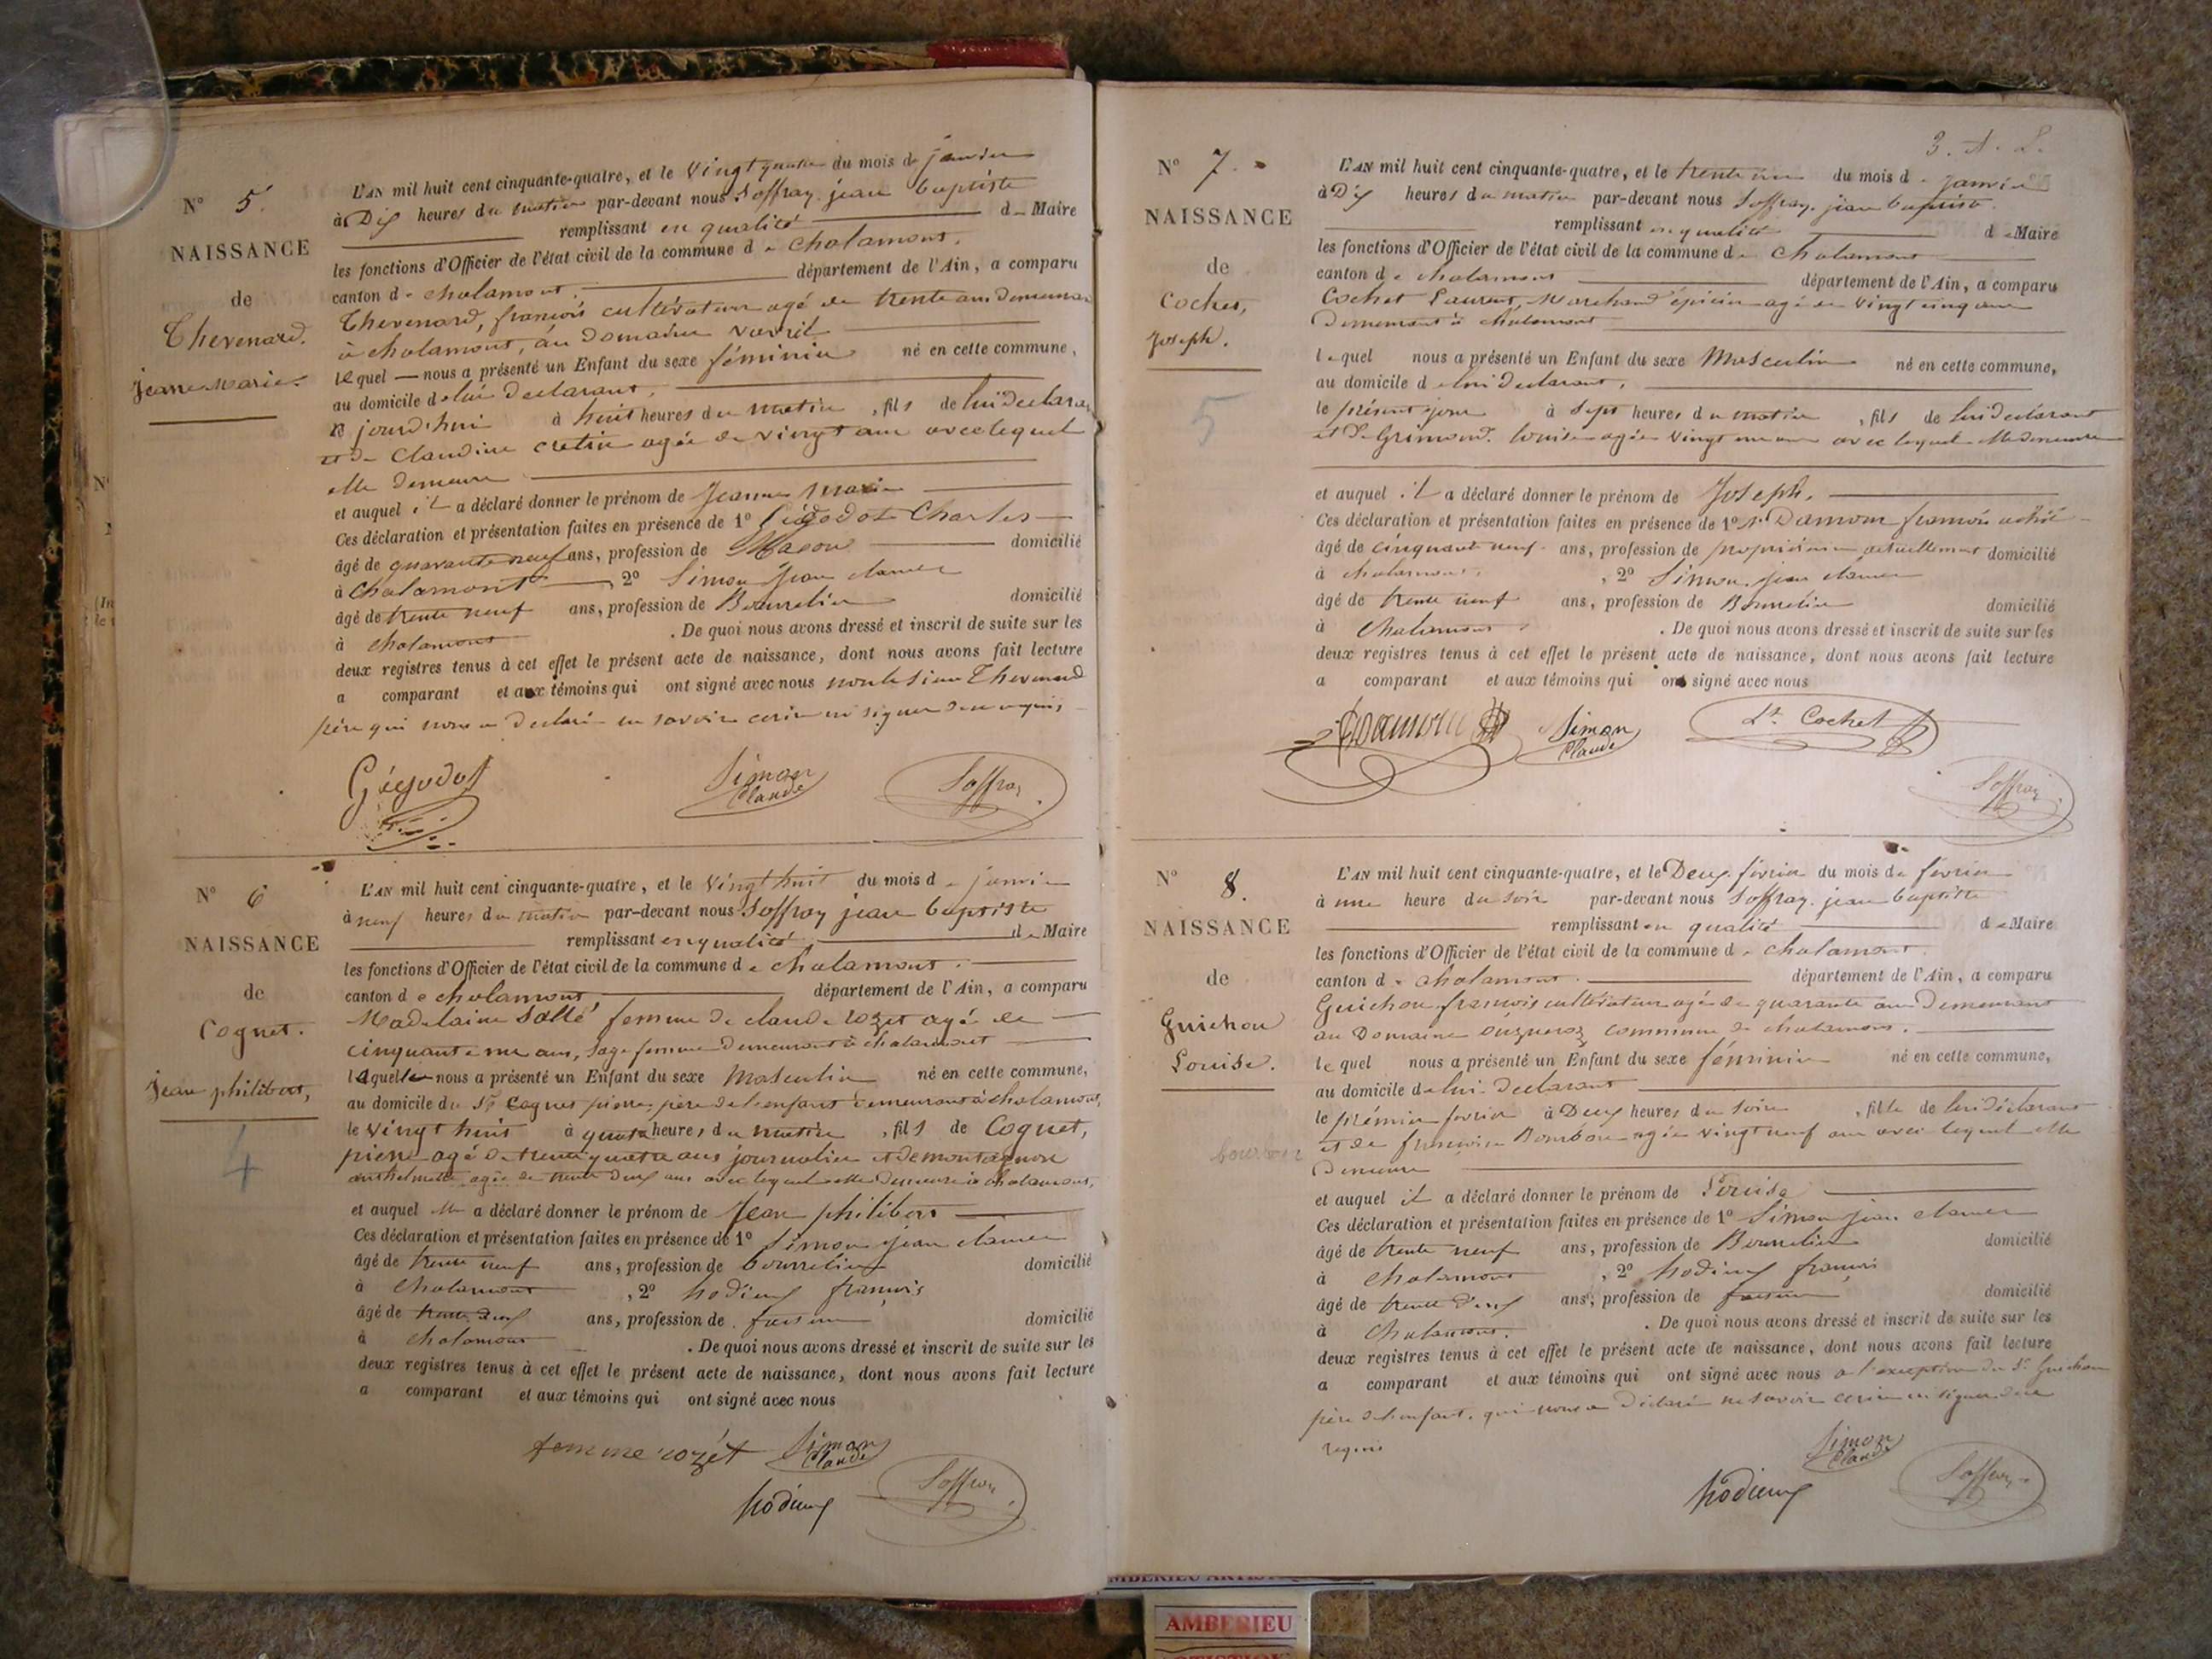 N° 5.
NAISSANCE
de
Thevenard.
Jeanne Marie
L'AN mil huit cent cinquante-quatre, et le Vingt quatre du mois de janvier
à Dix heures du matin par-devant nous Soffray jean baptiste
remplissant en qualité de Maire
les fonctions d'Officier de l'état civil de la commune de chalamont.
canton de chalamont. département de l'Ain, a comparu
Thevenard, françois cultivateur agé de trente ans demeurant
à chalamont, au Domaine
lequel nous a présenté un Enfant du sexe féminin né en cette commune,
au domicile de lui déclarant,
jourd'hui à huit heures du matin, fils de lui déclarant
et de Claudine cretin agée de vingt ans avec lequel
elle demeure
et auquel il a déclaré donner le prénom de Jeanne Marie
Ces déclaration et présentation faites en présence de 1° Gégodot Charles
âgé de quarante neuf ans, profession de Maçon domicilié
à Chalamont, 2° Simon jean claude
âgé de trente neuf ans, profession de Bourrelier domicilié
à chalamont. De quoi nous avons dressé et inscrit de suite sur les
deux registres tenus à cet effet le présent acte de naissance, dont nous avons fait lecture
a comparant et aux témoins qui ont signé avec nous non le sieur Thevenard
père qui nous a déclaré ne savoir écrire ni signer de ce requis
Gégodot
Simon Claude
Soffray
N° 6
NAISSANCE
de
Cognet.
Jean philibert,
4
L'AN mil huit cent cinquante-quatre, et le Vingt huit du mois de janvier
à neuf heures du matin par-devant nous Soffray jean baptiste
remplissant en qualité de Maire
les fonctions d'Officier de l'état civil de la commune de chalamont.
canton de chalamont, département de l'Ain, a comparu
Madelaine Sallé femme de claude rozet agé de
cinquante un ans, sage femme demeurant à chalamont
laquelle nous a présenté un Enfant du sexe Masculin né en cette commune,
au domicile du Sr Cognet pierre, père de l'enfant demeurant à chalamont,
le vingt huit à quatre heures du matin, fils de Cognet,
pierre agé de trente quatre ans journalier et de montagnon
anthelmette agée de trente deux ans avec lequel elle demeure à chalamont,
et auquel elle a déclaré donner le prénom de Jean philibert
Ces déclaration et présentation faites en présence de 1° Simon jean claude
âgé de trente neuf ans, profession de bourrelier domicilié
à chalamont, 2° hodieux françois
âgé de trente deux ans, profession de domicilié
à chalamont. De quoi nous avons dressé et inscrit de suite sur les
deux registres tenus à cet effet le présent acte de naissance, dont nous avons fait lecture
a comparant et aux témoins qui ont signé avec nous
femme rozét Simon Claude
hodieux Soffray
3. A. L.
N° 7.
NAISSANCE
de
Cochet,
Joseph.
5
L'AN mil huit cent cinquante-quatre, et le trente un du mois de janvier
à Dix heures du matin par-devant nous Soffray. jean baptiste.
remplissant en qualité de Maire
les fonctions d'Officier de l'état civil de la commune de chalamont
canton de chalamont département de l'Ain, a comparu
Cochet Laurent, Marchand épicier agé de vingt cinq ans
demeurant à chalamont
lequel nous a présenté un Enfant du sexe Masculin né en cette commune,
au domicile de lui déclarant,
le présent jour à sept heures du matin, fils de lui déclarant
et de Grimond. louise agée vingt un ans avec lequel elle demeure
et auquel il a déclaré donner le prénom de Joseph.
Ces déclaration et présentation faites en présence de 1° Sr Damon françois
âgé de cinquante neuf ans, profession de propriétaire actuellement domicilié
à chalamont, 2° Simon jean claude
âgé de trente neuf ans, profession de Bourrelier domicilié
à chalamont. De quoi nous avons dressé et inscrit de suite sur les
deux registres tenus à cet effet le présent acte de naissance, dont nous avons fait lecture
a comparant et aux témoins qui ont signé avec nous
Simon Claude
Lt. Cochet
Soffray
N° 8.
NAISSANCE
de
Guichon
Louise.
bourbon
L'AN mil huit cent cinquante-quatre, et le Deux février du mois de février
à une heure du soir par-devant nous Soffray. jean baptiste
remplissant en qualité de Maire
les fonctions d'Officier de l'état civil de la commune de chalamont
canton de chalamont. département de l'Ain, a comparu
Guichon françois cultivateur agé de quarante ans demeurant
au Domaine commune de chalamont.
lequel nous a présenté un Enfant du sexe féminin né en cette commune,
au domicile de lui déclarant
le prémier fevrier à Deux heures du soir, fille de lui déclarant
et de françoise Bombon agée vingt neuf ans avec lequel elle
demeure
et auquel il a déclaré donner le prénom de Louise
Ces déclaration et présentation faites en présence de 1° Simon jean claude
âgé de trente neuf ans, profession de Bourrelier domicilié
à chalamont, 2° hodieux françois
âgé de trente deux ans, profession de domicilié
à chalamont. De quoi nous avons dressé et inscrit de suite sur les
deux registres tenus à cet effet le présent acte de naissance, dont nous avons fait lecture
a comparant et aux témoins qui ont signé avec nous a l'exception du Sr Guichon
père de l'enfant. qui nous a déclaré ne savoir écrire ni signer de ce
requis
Simon Claude
hodieux Soffray
AMBERIEU ARTISTIQUE
AMBERIEU
ARTISTIQUE